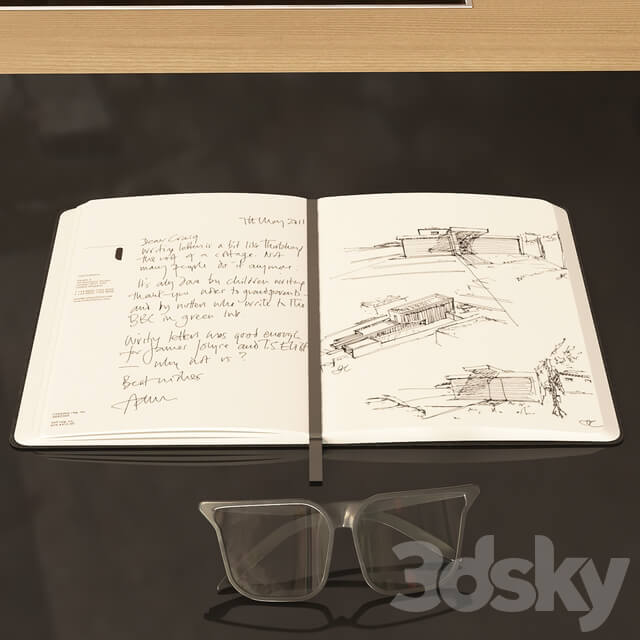 7th May 2011
Dear Craig
Writing letters is a bit like thatching
the roof of a cottage. Not
many people do it anymore
It's only done by children writing
thank you letters to grandparents
and by nutters who write to the
BBC in green ink
Writing letters was good enough
for James Joyce and TS Eliot
— why not us?
Best wishes
3dsky